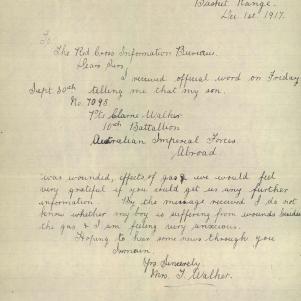 Basket Range.
Dec. 1st 1917.
To
The Red Cross Information Bureau.
Dear Sirs,
I received official word on Friday
Sept 30th telling me that my son.
No. 7098
Pte Clarne Walker
10th Battallion
Australian Imperial Forces
Abroad
was wounded, effects of gas & we would feel
very grateful if you could get us any further
information. By the message received I do not
know whether my boy is suffering from wounds besides
the gas, & I am feeling very anxious.
Hoping to hear some news through you
I remain
Yrs Sincerely
Mrs. J. Walker.